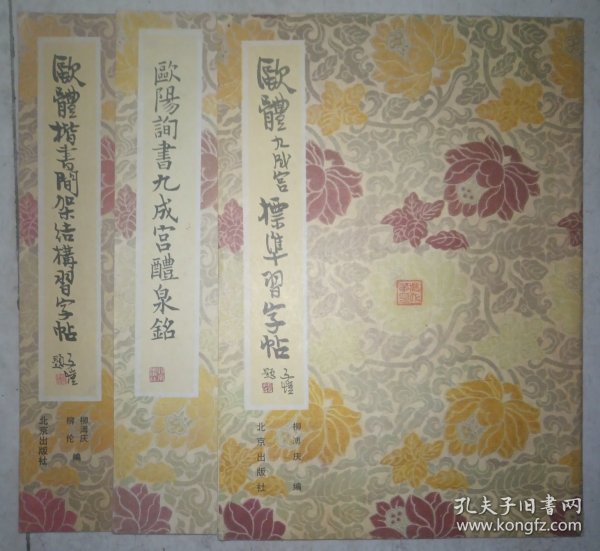 歐體楷書間架结構習字帖
子愷
題
柳溥庆
柳伦 编
北京出版社
歐陽詢書九成宮醴泉銘
歐體九成宮標準習字帖
子愷
題
柳溥庆 编
北京出版社
孔夫子旧书网
www.kongfz.com